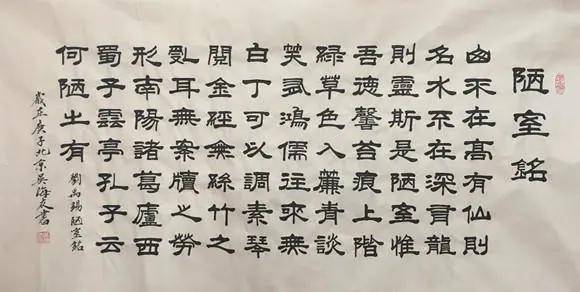 陋室銘
山不在高有仙則
名水不在深有龍
則靈斯是陋室惟
吾德馨苔痕上階
綠草色入簾青談
笑有鴻儒往來無
白丁可以調素琴
閱金經無絲竹之
亂耳無案牘之勞
形南陽諸葛廬西
蜀子雲亭孔子云
何陋之有
劉禹錫陋室銘
歲在庚子北京吳海友書